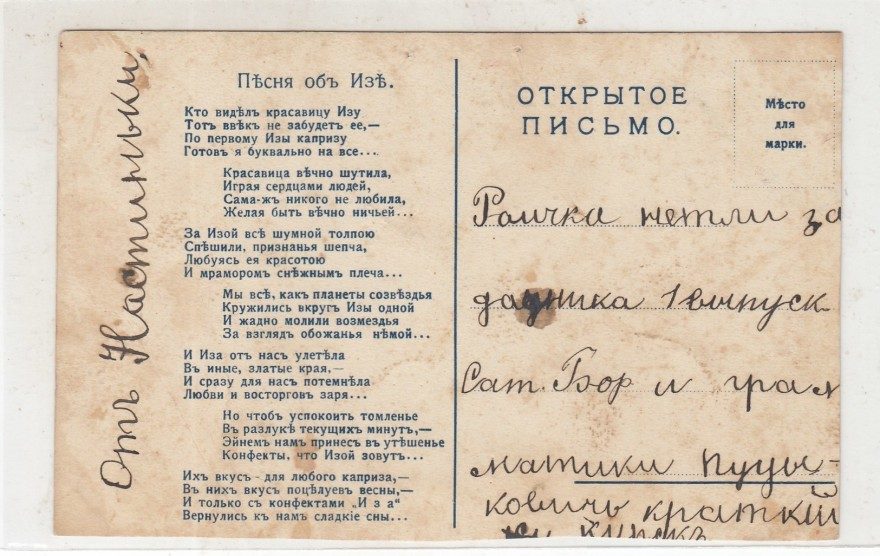 Отъ Настиньки.
Пѣсня объ Изѣ.
Кто видѣлъ красавицу Изу
Тотъ ввѣкъ не забудетъ ее,—
По первому Изы капризу
Готовъ я буквально на все...
Красавица вѣчно шутила,
Играя сердцами людей,
Сама-жъ никого не любила,
Желая быть вѣчно ничьей...
За Изой всѣ шумной толпою
Спѣшили, признанья шепча,
Любуясь ея красотою
И мраморомъ снѣжнымъ плеча...
Мы всѣ, какъ планеты созвѣздья
Кружились вкругъ Изы одной
И жадно молили возмездья
За взглядъ обожанья нѣмой...
И Иза отъ насъ улетѣла
Въ иные, златые края,—
И сразу для насъ потемнѣла
Любви и восторговъ заря...
Но чтобъ успокоить томленье
Въ разлукѣ текущихъ минутъ,—
Эйнемъ намъ принесъ въ утѣшенье
Конфекты, что Изой зовутъ...
Ихъ вкусъ - для любого каприза,—
Въ нихъ вкусъ поцѣлуевъ весны,—
И только съ конфектами „И з а"
Вернулись къ намъ сладкіе сны...
ОТКРЫТОЕ
ПИСЬМО.
Мѣсто
для
марки.
Раичка нетли за
дачника 1 выпуск
Сат. Бор и грам
матики Пуцы-
ковичъ краткій